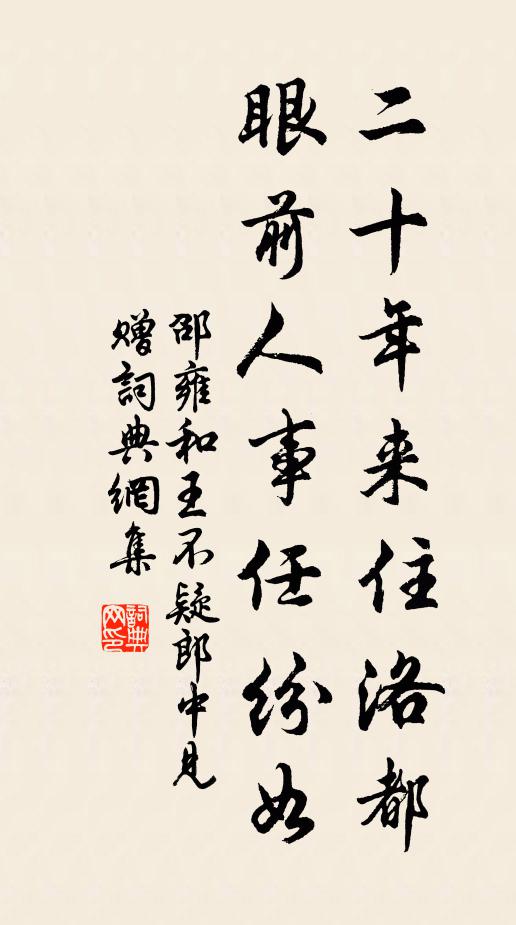 二十年来住洛都
眼前人事任纷如
邵雍和王不疑郎中见
赠詞典網集
詞典
网印